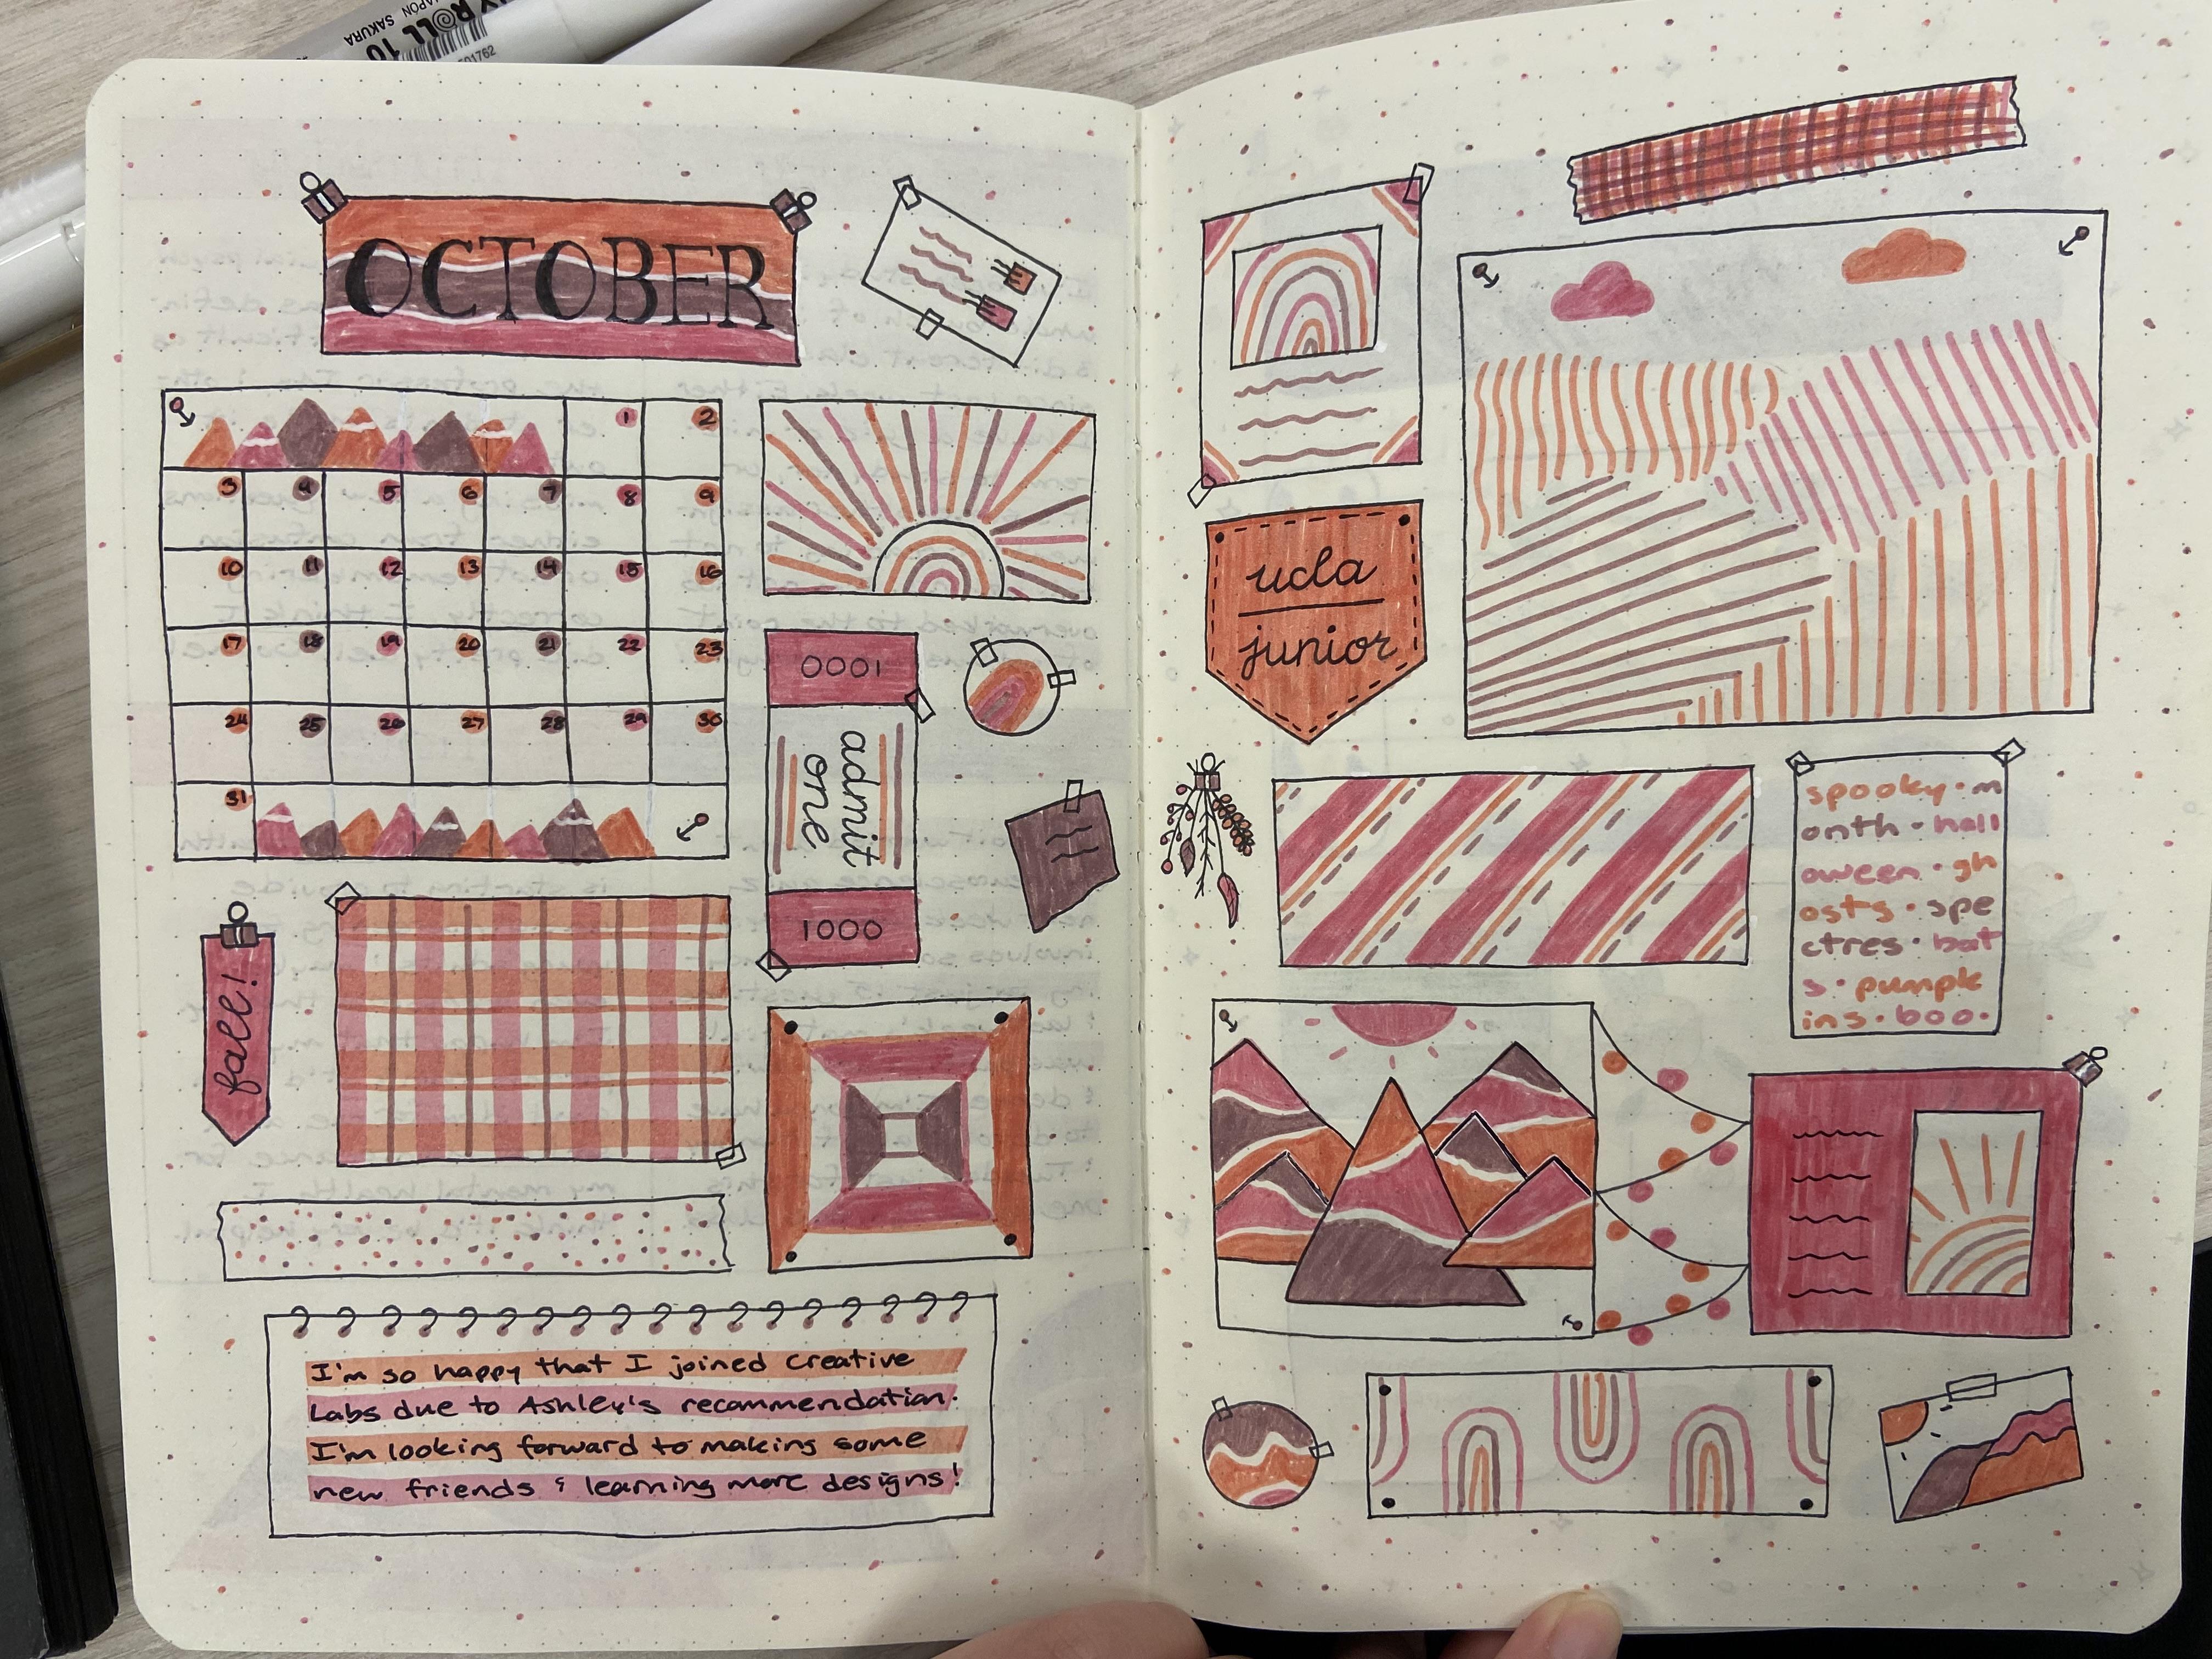 ROLL 10
JAPON SAKURA
OCTOBER
1 2
3 4 5 6 7 8 9
10 11 12 13 14 15 16
17 18 19 20 21 22 23
24 25 26 27 28 29 30
31
0001
admit
one
1000
fall!
I'm so happy that I joined Creative
Labs due to Ashley's recommendation.
I'm looking forward to making some
new friends & learning more designs!
ucla
junior
spooky · m
onth · hall
oween · gh
osts · spe
ctres · bat
s · pumpk
ins · boo ·